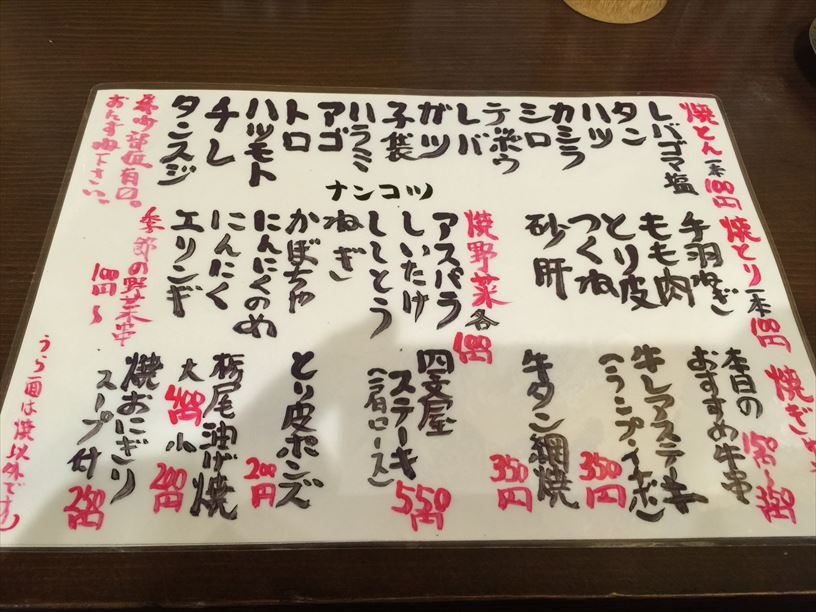 焼とん 一本100円
レバゴマ塩
タン
ハツ
カシラ
シロ
テッポウ
レバ
ガツ
子袋
ハラミ
アゴ
トロ
ハツモト
チレ
タンスジ
ナンコツ
希少部位有り。
おたずね下さい。
焼とり 一本100円
手羽ねぎ
もも肉
とり皮
つくね
砂肝
焼野菜 各100円
アスパラ
しいたけ
ししとう
ねぎ
かぼちゃ
にんにくのめ
にんにく
エリンギ
季節の野菜串
100円〜
焼ぎ
本日の
おすすめ牛串
150〜350円
牛レアステーキ
(ランプ・イチボ)
350円
牛タン網焼
350円
四文屋
ステーキ
(肩ロース)
550円
とり皮ポンズ
200円
栃尾油げ焼
大400円 小200円
焼おにぎり
スープ付
250円
うら面は焼以外です